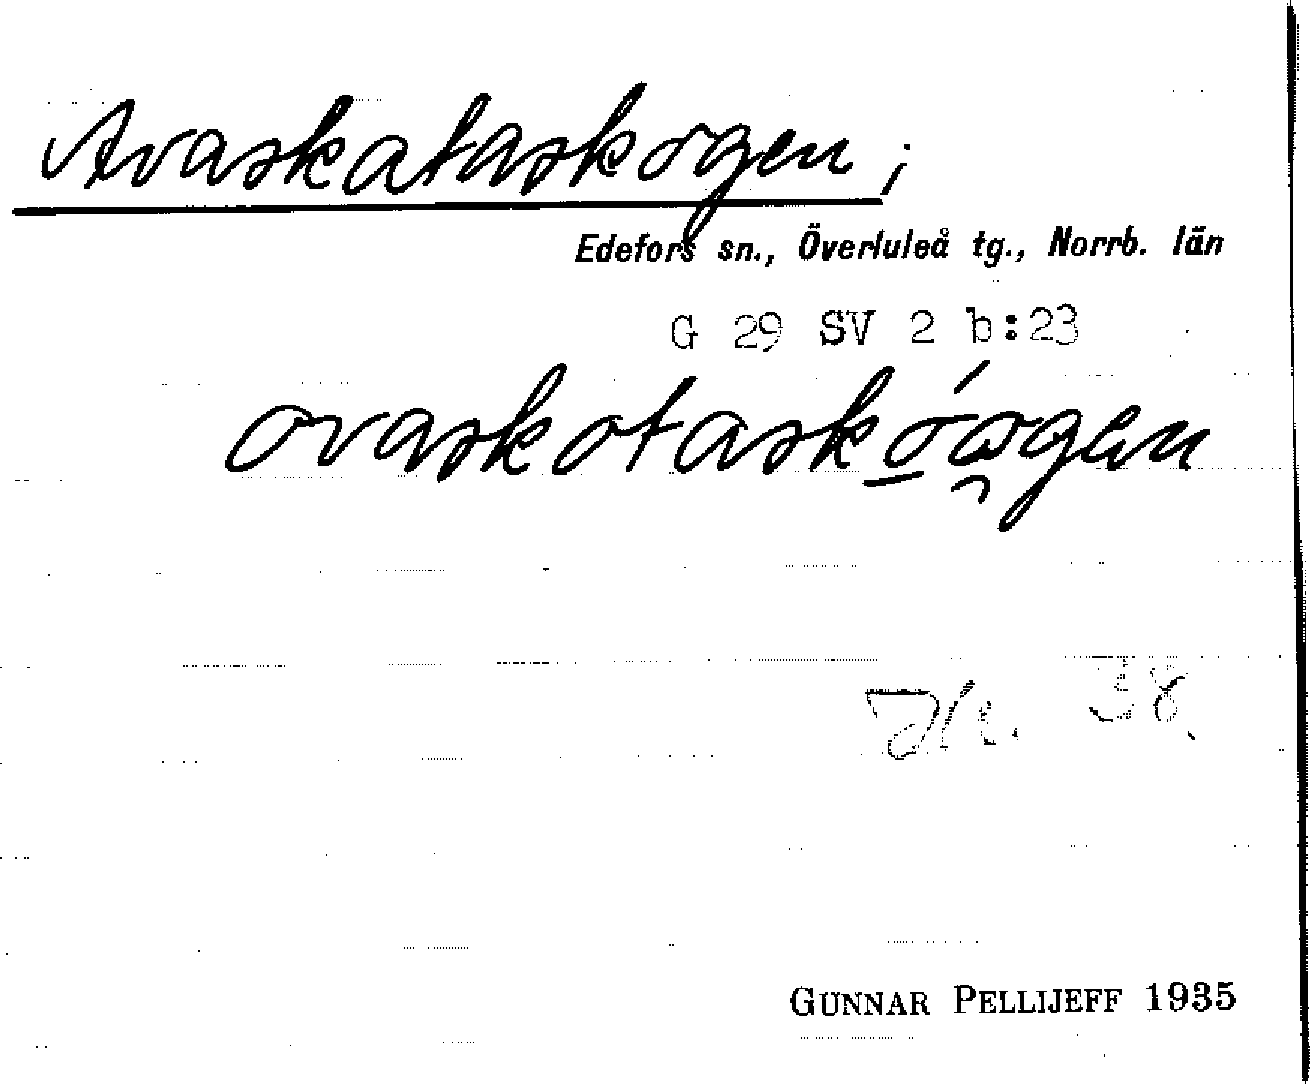 Avaskataskogen;
Edefors sn., Överluleå tg., Norrb. län
G 29 SV 2 b:23
ovaskotaskóogen
38
GUNNAR PELLIJEFF 1935